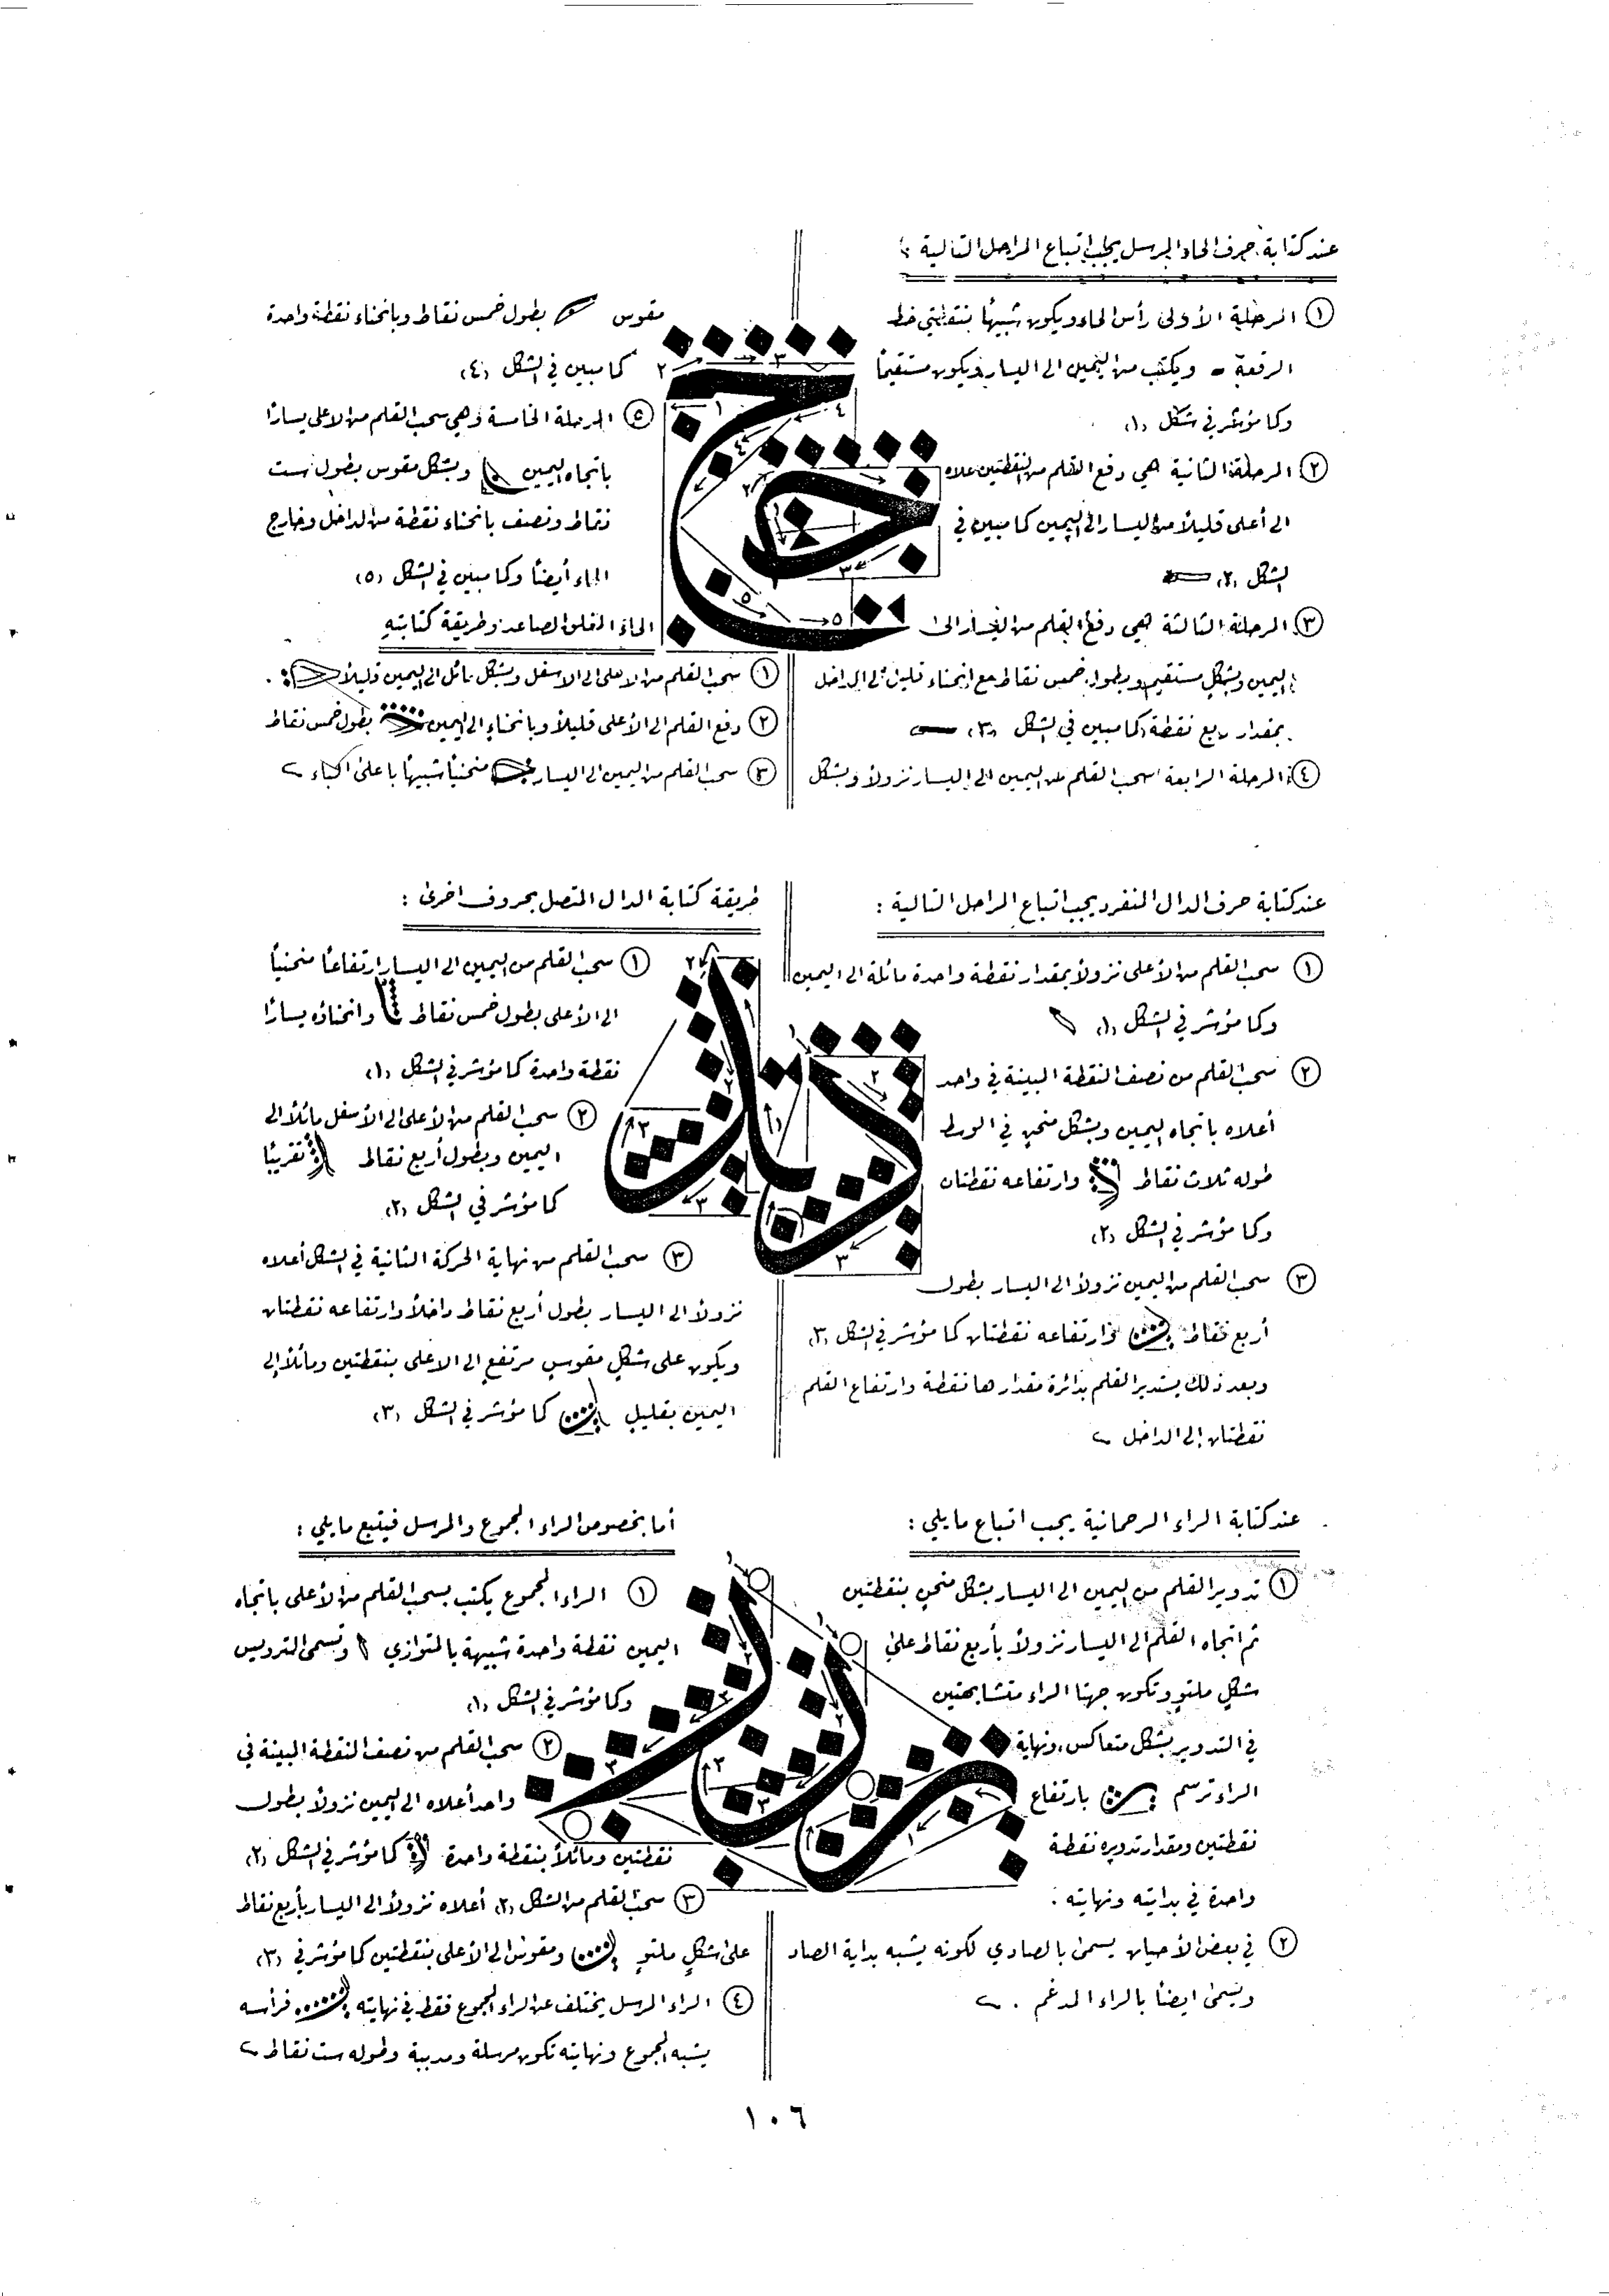 عند كتابة حرف الحاء المرسل يجب اتباع المراحل التالية :
١ المرحلة الأولى رأس الحاء ويكون شبيهاً بنقطتي خط
الرقعة ويكتب من اليمين الى اليسار ويكون مستقيماً
وكما مؤشر في شكل (١)
٢ المرحلة الثانية هي دفع القلم من النقطتين علاه
الى أعلى قليلاً من اليسار الى اليمين كما مبين في
الشكل (٢)
٣ المرحلة الثالثة هي دفع القلم من اليسار الى
اليمين وبشكل مستقيم وبطول خمس نقاط مع انحناء قليل الى الداخل
بمقدار ربع نقطة كما مبين في الشكل (٣)
٤ المرحلة الرابعة سحب القلم من اليمين الى اليسار نزولاً وبشكل
مقوس بطول خمس نقاط وبانحناء نقطة واحدة
كما مبين في الشكل (٤)
٥ المرحلة الخامسة وهي سحب القلم من الاعلى يساراً
باتجاه اليمين وبشكل مقوس بطول ست
نقاط ونصف بانحناء نقطة من الداخل وخارج
الحاء أيضاً وكما مبين في الشكل (٥)
الحاء المغلق الصاعد وطريقة كتابته
١ سحب القلم من الاعلى الى الاسفل وبشكل مائل الى اليمين قليلاً .
٢ دفع القلم الى الأعلى قليلاً وبانحناء الى اليمين بطول خمس نقاط
٣ سحب القلم من اليمين الى اليسار منحنياً شبيهاً باعلى الحاء
٣ ١ ٢ ٤ ٤ ٢ ١ ٣ ٥ ٥
عند كتابة حرف الدال المنفرد يجب اتباع المراحل التالية :
١ سحب القلم من الأعلى نزولاً بمقدار نقطة واحدة مائلة الى اليمين
وكما مؤشر في الشكل (١)
٢ سحب القلم من نصف النقطة المبينة في واحد
أعلاه باتجاه اليمين وبشكل منحنٍ في الوسط
طوله ثلاث نقاط وارتفاعه نقطتان
وكما مؤشر في الشكل (٢)
٣ سحب القلم من اليمين نزولاً الى اليسار بطول
أربع نقاط وارتفاعه نقطتان كما مؤشر في الشكل (٣)
وبعد ذلك يستدير القلم بدائرة مقدارها نقطة وارتفاع القلم
نقطتان إلى الداخل
طريقة كتابة الدال المتصل بحروف اخرى :
١ سحب القلم من اليمين الى اليسار ارتفاعاً منحنياً
الى الأعلى بطول خمس نقاط وانحناؤه يساراً
نقطة واحدة كما مؤشر في الشكل (١)
٢ سحب القلم من الأعلى الى الأسفل مائلاً الى
اليمين وبطول أربع نقاط تقريباً
كما مؤشر في الشكل (٢)
٣ سحب القلم من نهاية الحركة الثانية في الشكل أعلاه
نزولاً الى اليسار بطول أربع نقاط داخلاً وارتفاعه نقطتان
ويكون على شكل مقوس مرتفع إلى الاعلى بنقطتين ومائلاً إلى
اليمين بقليل كما مؤشر في الشكل (٣)
٢ ١ ٢ ٢ ١ ٣ ٣ ٣
عند كتابة الراء الرحمانية يجب اتباع مايلي :
١ تدوير القلم من اليمين الى اليسار بشكل منحنٍ بنقطتين
ثم اتجاه القلم الى اليسار نزولاً بأربع نقاط على
شكل ملتوٍ وتكون جهتا الراء متشابهتين
في التدوير بشكل متعاكس ونهاية
الراء ترسم بارتفاع
نقطتين ومقدار تدويره نقطة
واحدة في بدايته ونهايته .
٢ في بعض الأحيان يسمى بالصادي لكونه يشبه بداية الصاد
ويسمى ايضاً بالراء المدغم .
أما بخصوص الراء المجموع والمرسل فيتبع مايلي :
١ الراء المجموع يكتب بسحب القلم من الأعلى باتجاه
اليمين نقطة واحدة شبيهة بالمتوازي وتسمى الترويس
وكما مؤشر في الشكل (١)
٢ سحب القلم من نصف النقطة المبينة في
واحد أعلاه الى اليمين نزولاً بطول
نقطتين ومائلاً بنقطة واحدة كما مؤشر في الشكل (٢)
٣ سحب القلم من الشكل (٢) أعلاه نزولاً الى اليسار بأربع نقاط
على شكلٍ ملتوٍ ومقوس الى الأعلى بنقطتين كما مؤشر في (٣)
٤ الراء المرسل يختلف عن الراء المجموع فقط في نهايته فرأسه
يشبه المجموع ونهايته تكون مرسلة ومدببة وطوله ست نقاط
١ ١ ٢ ٣ ٢ ٣ ٣ ٣ ١
١٠٦